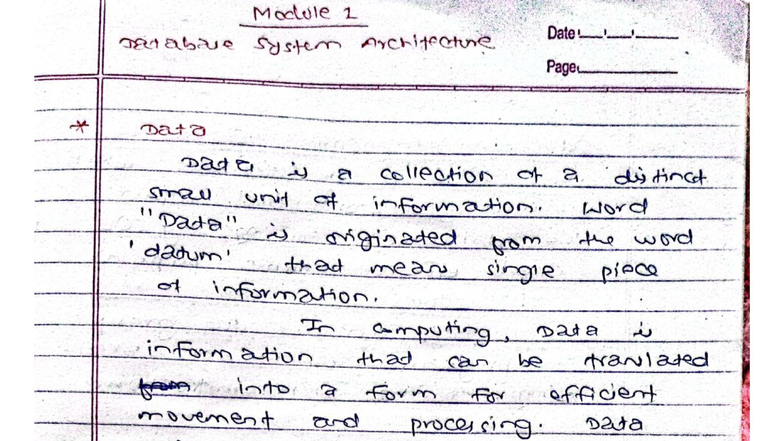 Module 1
Database System Architecture
Date
Page
* Data
Data is a collection of a distinct
small unit of information. Word
"Data" is originated from the word
'datum' that mean single piece
of information.
In computing, Data is
information that can be translated
into a form for efficient
movement and processing. Data